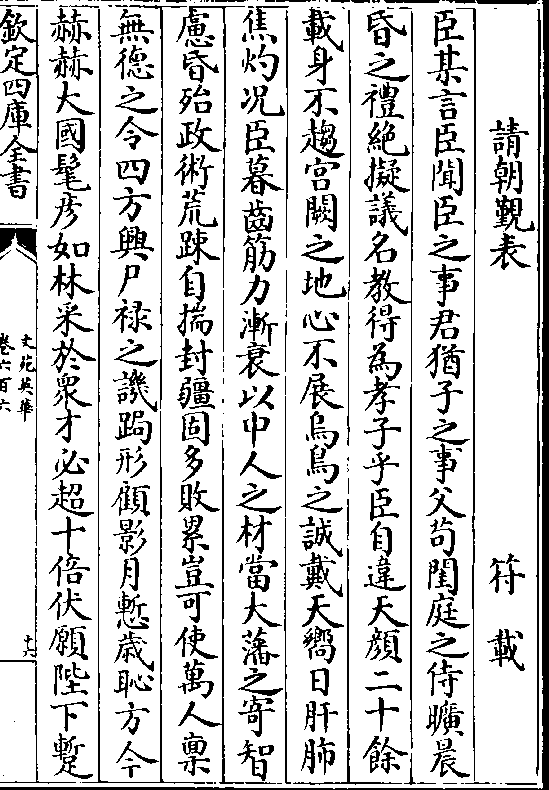 請朝覲表　符載
臣某言臣聞臣之事君猶子之事父苟閨庭之侍曠晨
昏之禮絶擬議名教得為孝子乎臣自違天顔二十餘
載身不趨宫闕之地心不展烏鳥之誠戴天嚮日肝肺
焦灼况臣暮齒筋力漸衰以中人之材當大藩之寄智
慮昏殆政術荒疎自揣封疆固多敗累豈可使萬人禀
無德之令四方興尸禄之譏跼形顧影月慙歳恥方今
赫赫大國髦彦如林采於衆才必超十倍伏願陛下蹔
欽定四庫全書
文苑英華
卷六百六
十六